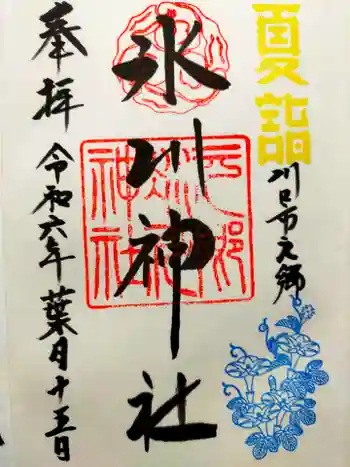 夏詣
川口市元郷
氷川神社
元郷氷川神社
奉拝
令和六年葉月十五日